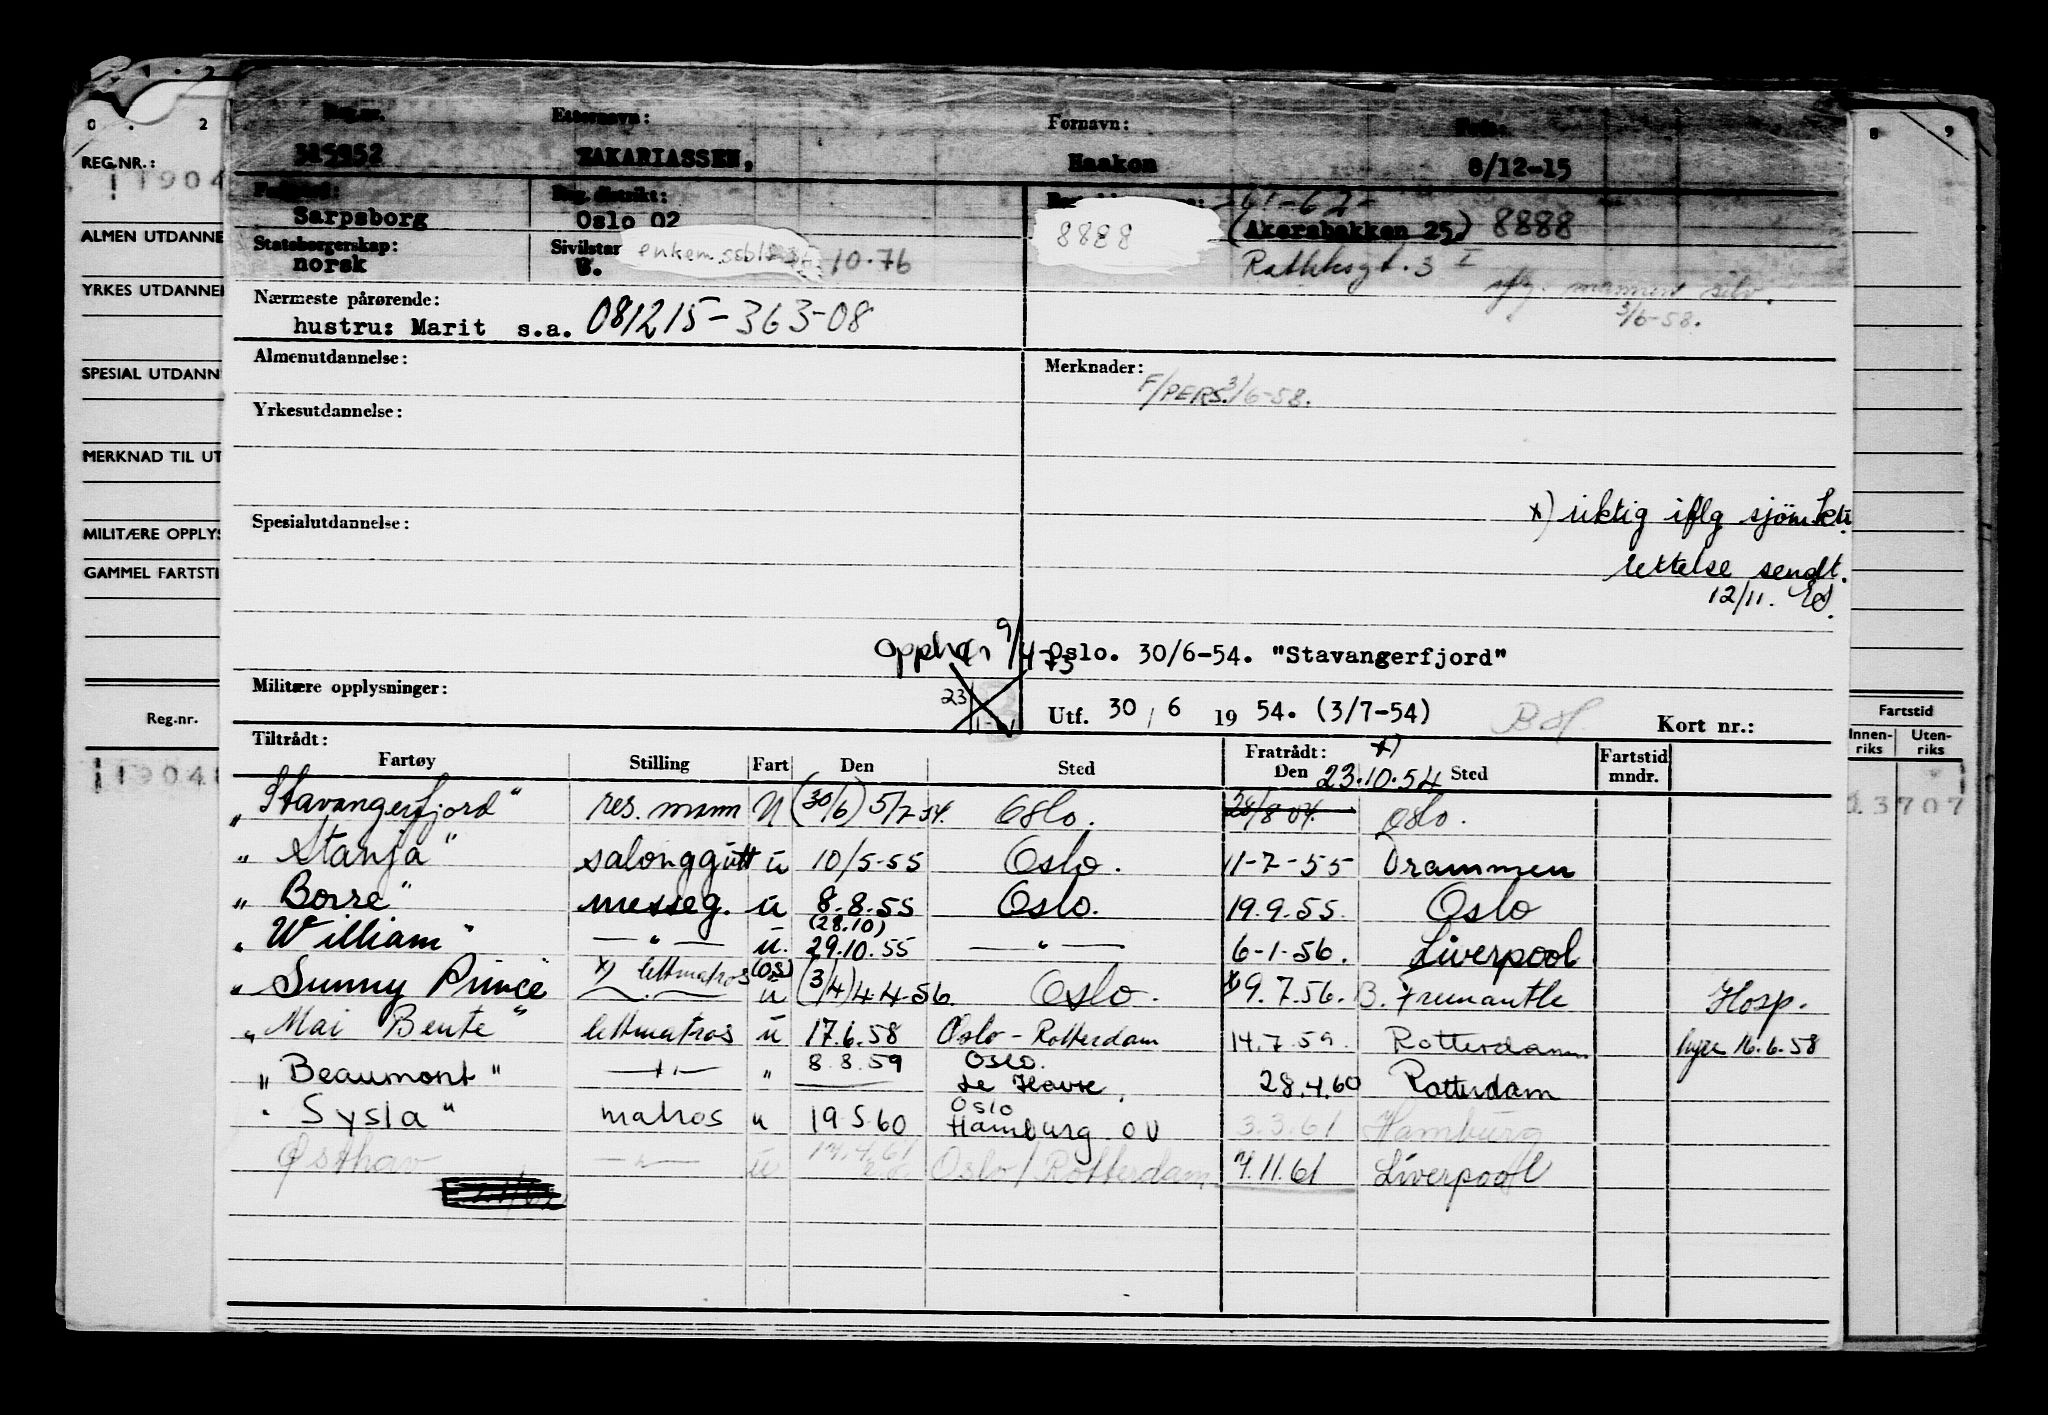 0 . 2
8 9
REG.NR.:
1904
ALMEN UTDANNE
YRKES UTDANNEL
SPESIAL UTDANN
MERKNAD TIL UT
MILITÆRE OPPLYS
GAMMEL FARTSTI
Reg.nr.
1904
Fartstid
Innen- Uten-
riks riks
3707
Reg.nr. Etternavn: Fornavn:
325952 ZAKARIASSEN, Haakon 8/12-15
Sarpsborg Oslo 02 8888 (Akersbakken 25.) 8888
Statsborgerskap: Sivilstan
norsk 10.76 3 I
Nærmeste pårørende: 3/6-58.
hustru: Marit s.a. 081215-363-08
Almenutdannelse: Merknader:
F/PERS. 3/6-58.
Yrkesutdannelse:
x) riktig iflg sjøm.ktr.
Spesialutdannelse:
rettelse sendt.
12/11.
Opphør 9/4-73 Oslo. 30/6-54. "Stavangerfjord"
Militære opplysninger: 23
Utf. 30 / 6 19 54. (3/7-54) Kort nr.:
Tiltrådt: Fratrådt: x)
Fartøy Stilling Fart Den Sted Den 23.10.54 Sted Fartstid mndr.
"Stavangerfjord" res. mann U (30/6) 5/7-54. Oslo. 28/8-54. Oslo.
"Stanja" salonggutt u 10/5-55 Oslo. 11-7-55 Drammen
"Borre" messeg. u 8.8.55 Oslo. 19.9.55. Oslo
"William" — " — u. (28.10) 29.10.55 — " — 6-1-56. Liverpool
"Sunny Prince" x) lettmatros (OS) u (3/4) 4.4-56. Oslo. x9.7.56. B. Fremantle Hosp.
"Mai Bente" lettmatros u 17.6.58 Oslo - Rotterdam 14.7.59. Rotterdam hyre 16.6.58
"Beaumont" — " — " 8.8.59 Oslo. Le Havre. 28.4.60 Rotterdam
"Sysla" matros " 19.5.60 Oslo Hamburg OU 3.3.61 Hamburg
Østhav — " — u 14.4.61 Oslo / Rotterdam 7.11.61 Liverpool